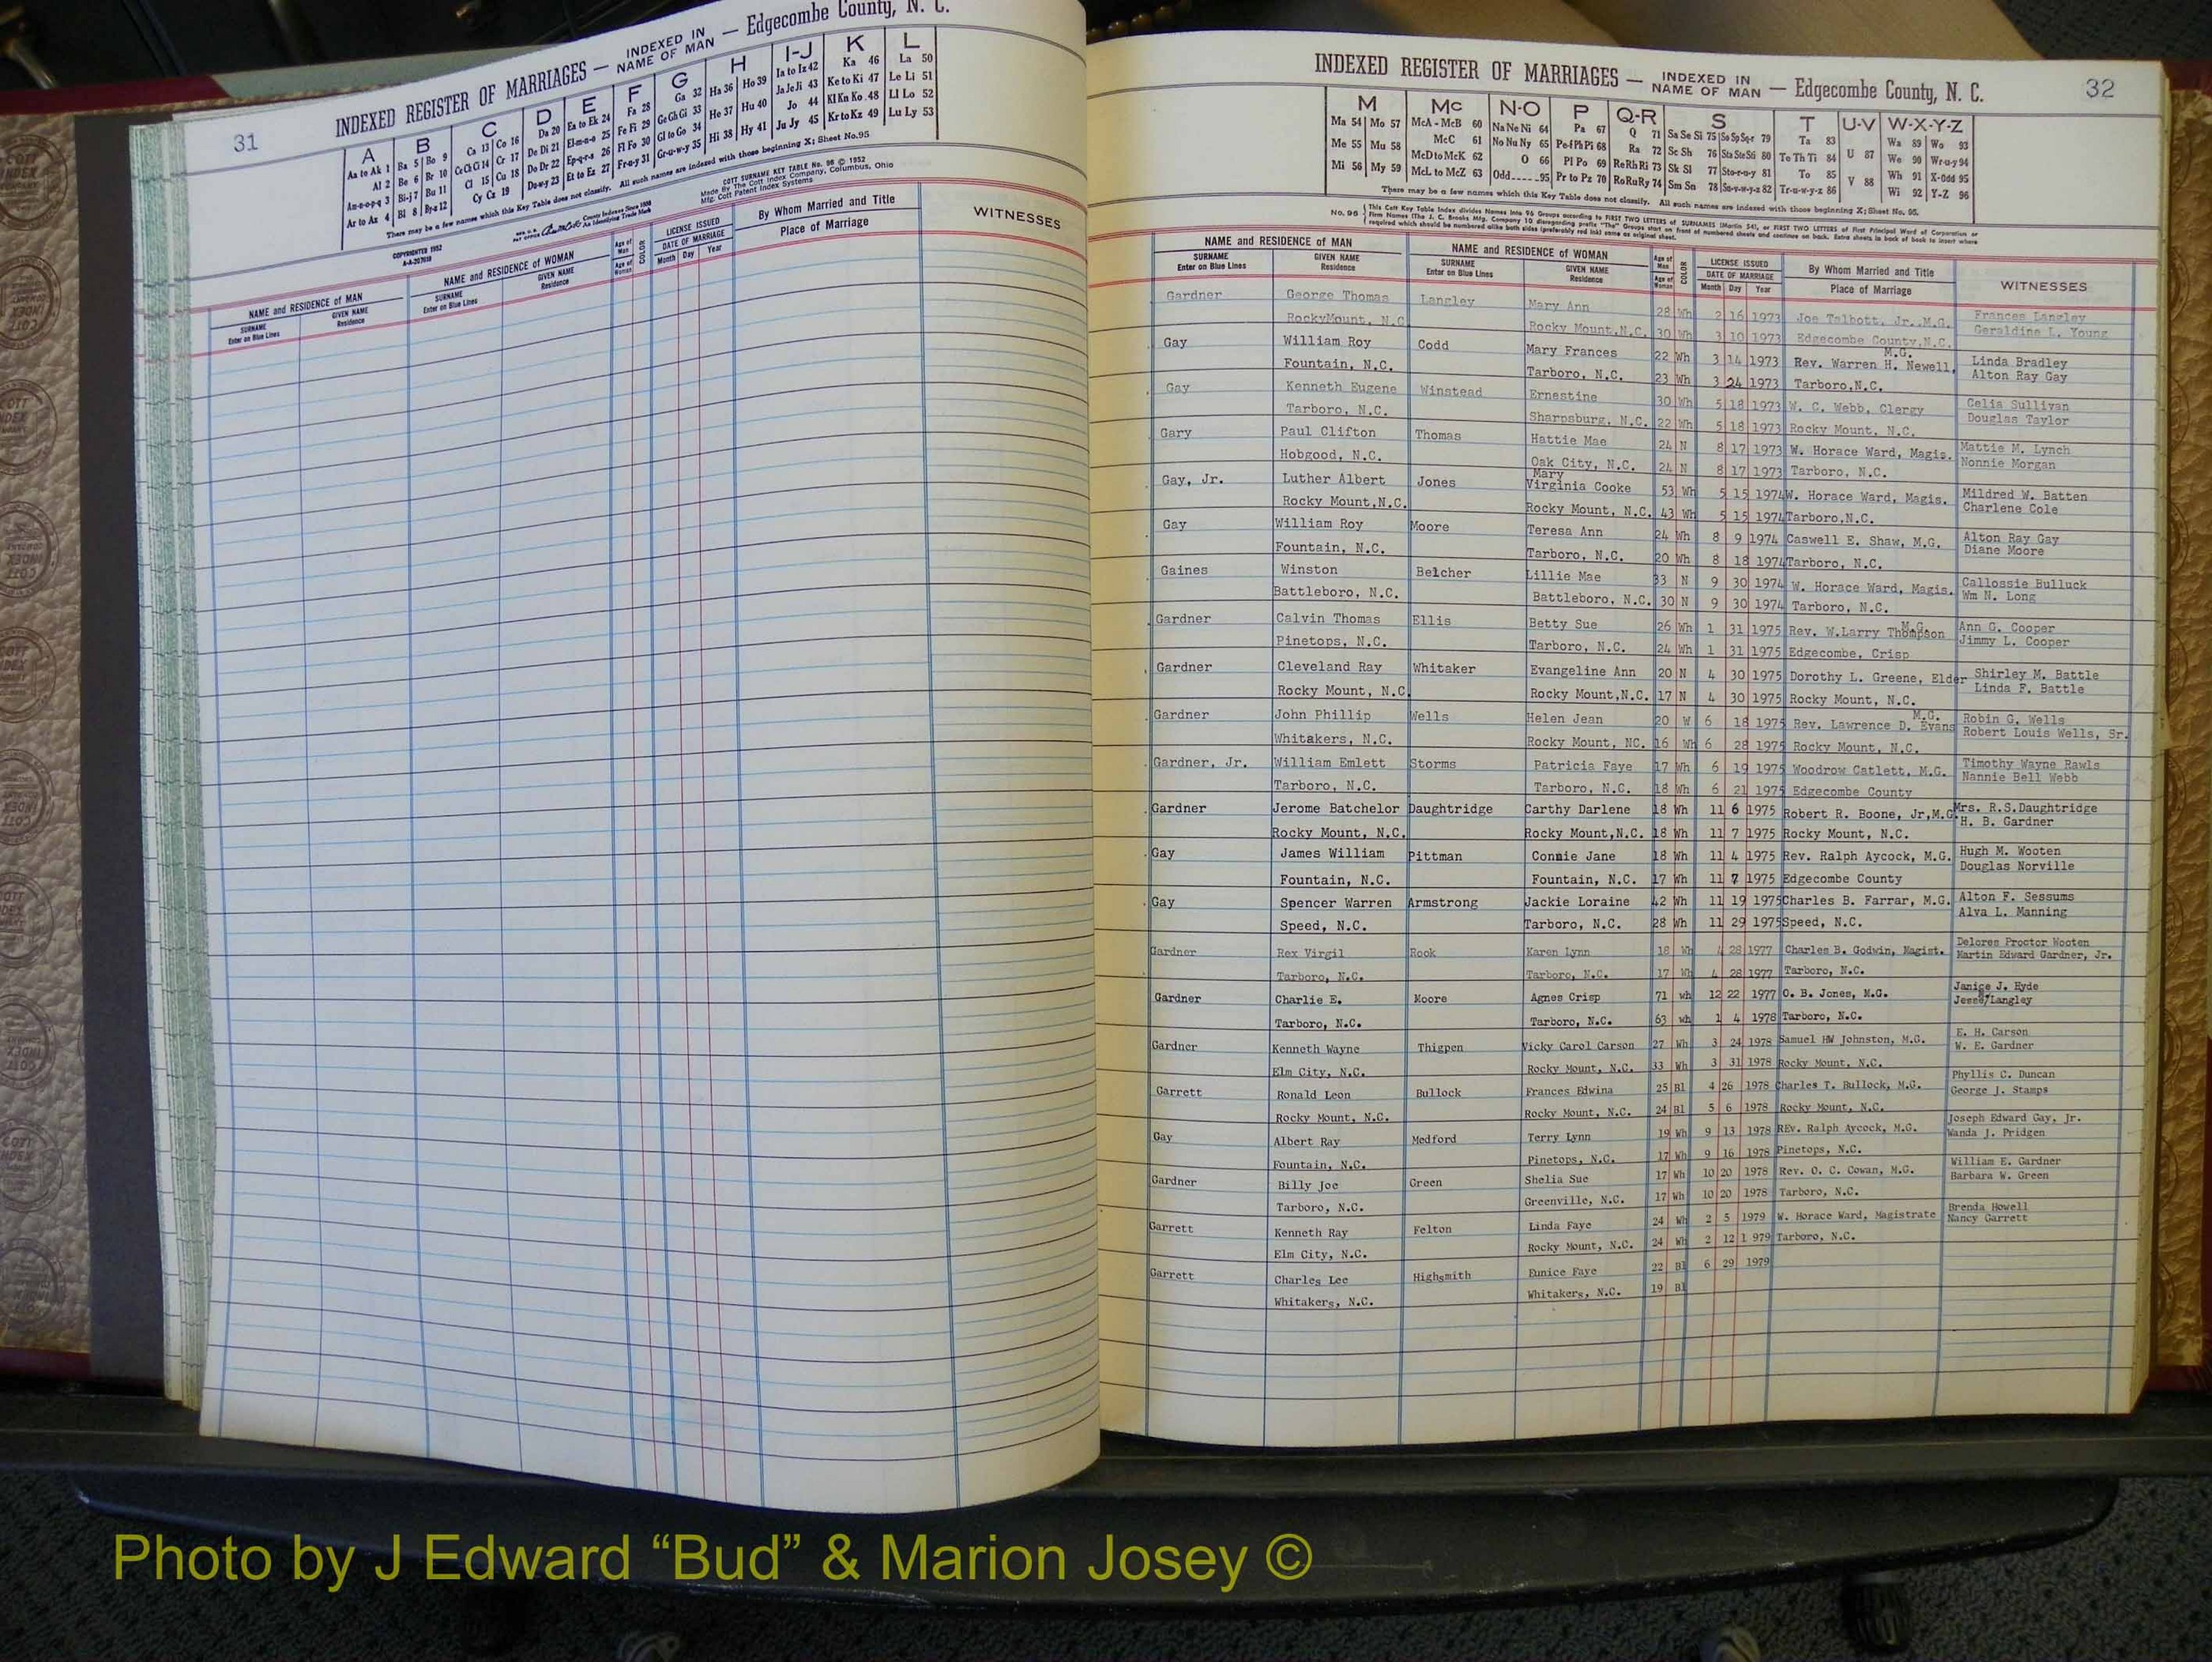 31
INDEXED REGISTER OF MARRIAGES — INDEXED IN NAME OF MAN — Edgecombe County, N. C.
A B C D E F G H I-J K L
Aa to Ak 1 Ba 5 Bo 9 Ca 13 Co 16 Da 20 Ea to Ek 24 Fa 28 Ga 32 Ha 36 Ho 39 Ia to Iz 42 Ka 46 La 50
Al 2 Be 6 Br 10 Ce Ch Ci 14 Cr 17 De Di 21 El-m-n-o 25 Fe Fi 29 Ge Gh Gi 33 He 37 Hu 40 Ja Je Ji 43 Ke to Ki 47 Le Li 51
Am-n-o-p-q 3 Bi-j 7 Bu 11 Cl 15 Cu 18 Do Dr 22 Ep-q-r-s 26 Fl Fo 30 Gl to Go 34 Hi 38 Hy 41 Jo 44 Kl Kn Ko 48 Ll Lo 52
Ar to Az 4 Bl 8 By-z 12 Cy Cz 19 Du-w-y 23 Et to Ez 27 Fr-u-y 31 Gr-u-w-y 35 Ju Jy 45 Kr to Kz 49 Lu Ly 53
There may be a few names which this Key Table does not classify. All such names are indexed with those beginning X; Sheet No. 95
COPYRIGHTED 1952
COTT SURNAME KEY TABLE No. 96 © 1952
Made By The Cott Index Company, Columbus, Ohio
Mfg. Cott Patent Index Systems
NAME and RESIDENCE of MAN
SURNAME
Enter on Blue Lines
GIVEN NAME
Residence
NAME and RESIDENCE of WOMAN
SURNAME
Enter on Blue Lines
GIVEN NAME
Residence
Age of Man
Age of Woman
COLOR
LICENSE ISSUED
DATE OF MARRIAGE
Month Day Year
By Whom Married and Title
Place of Marriage
WITNESSES
INDEXED REGISTER OF MARRIAGES — INDEXED IN NAME OF MAN — Edgecombe County, N. C.
32
M Mc N-O P Q-R S T U-V W-X-Y-Z
Ma 54 Mo 57 McA - McB 60 Na Ne Ni 64 Pa 67 Q 71 Sa Se Si 75 So Sp Sq-r 79 Ta 83 U 87 Wa 89 Wo 93
Me 55 Mu 58 McC 61 No Nu Ny 65 Pe-f Ph Pi 68 Ra 72 Sc Sh 76 Sta Ste Sti 80 Te Th Ti 84 We 90 Wr-u-y 94
McD to McK 62 O 66 Pl Po 69 Re Rh Ri 73 Sk Sl 77 Sto-r-u-y 81 To 85 V 88 Wh 91 X-Odd 95
Mi 56 My 59 McL to McZ 63 Odd 95 Pr to Pz 70 Ro Ru Ry 74 Sm Sn 78 Su-v-w-y-z 82 Tr-u-w-y-z 86 Wi 92 Y-Z 96
There may be a few names which this Key Table does not classify. All such names are indexed with those beginning X; Sheet No. 95.
NAME and RESIDENCE of MAN
SURNAME
Enter on Blue Lines
GIVEN NAME
Residence
NAME and RESIDENCE of WOMAN
SURNAME
Enter on Blue Lines
GIVEN NAME
Residence
Age of Man
Age of Woman
COLOR
LICENSE ISSUED
DATE OF MARRIAGE
Month Day Year
By Whom Married and Title
Place of Marriage
WITNESSES
Gardner George Thomas Langley Mary Ann 28 Wh 2 16 1973 Joe Talbott, Jr., M.G. Frances Langley
RockyMount, N.C. Rocky Mount,N.C. 30 Wh 3 10 1973 Edgecombe County,N.C. Geraldine L. Young
Gay William Roy Codd Mary Frances 22 Wh 3 14 1973 Rev. Warren H. Newell, M.G. Linda Bradley
Fountain, N.C. Tarboro, N.C. 23 Wh 3 24 1973 Tarboro,N.C. Alton Ray Gay
Gay Kenneth Eugene Winstead Ernestine 30 Wh 5 18 1973 W. C. Webb, Clergy Celia Sullivan
Tarboro, N.C. Sharpsburg, N.C. 22 Wh 5 18 1973 Rocky Mount, N.C. Douglas Taylor
Gary Paul Clifton Thomas Hattie Mae 24 N 8 17 1973 W. Horace Ward, Magis. Mattie M. Lynch
Hobgood, N.C. Oak City, N.C. 24 N 8 17 1973 Tarboro, N.C. Nonnie Morgan
Gay, Jr. Luther Albert Jones Mary Virginia Cooke 53 Wh 5 15 1974 W. Horace Ward, Magis. Mildred W. Batten
Rocky Mount,N.C. Rocky Mount, N.C. 43 Wh 5 15 1974 Tarboro,N.C. Charlene Cole
Gay William Roy Moore Teresa Ann 24 Wh 8 9 1974 Caswell E. Shaw, M.G. Alton Ray Gay
Fountain, N.C. Tarboro, N.C. 20 Wh 8 18 1974 Tarboro, N.C. Diane Moore
Gaines Winston Belcher Lillie Mae 33 N 9 30 1974 W. Horace Ward, Magis. Callossie Bulluck
Battleboro, N.C. Battleboro, N.C. 30 N 9 30 1974 Tarboro, N.C. Wm N. Long
Gardner Calvin Thomas Ellis Betty Sue 26 Wh 1 31 1975 Rev. W.Larry Thompson M.G. Ann G. Cooper
Pinetops, N.C. Tarboro, N.C. 24 Wh 1 31 1975 Edgecombe, Crisp Jimmy L. Cooper
Gardner Cleveland Ray Whitaker Evangeline Ann 20 N 4 30 1975 Dorothy L. Greene, Elder Shirley M. Battle
Rocky Mount, N.C. Rocky Mount,N.C. 17 N 4 30 1975 Rocky Mount, N.C. Linda F. Battle
Gardner John Phillip Wells Helen Jean 20 W 6 18 1975 Rev. Lawrence D. Evans M.G. Robin G. Wells
Whitakers, N.C. Rocky Mount, NC. 16 Wh 6 28 1975 Rocky Mount, N.C. Robert Louis Wells, Sr.
Gardner, Jr. William Emlett Storms Patricia Faye 17 Wh 6 19 1975 Woodrow Catlett, M.G. Timothy Wayne Rawls
Tarboro, N.C. Tarboro, N.C. 18 Wh 6 21 1975 Edgecombe County Nannie Bell Webb
Gardner Jerome Batchelor Daughtridge Carthy Darlene 18 Wh 11 6 1975 Robert R. Boone, Jr,M.G. Mrs. R.S.Daughtridge
Rocky Mount, N.C. Rocky Mount,N.C. 18 Wh 11 7 1975 Rocky Mount, N.C. H. B. Gardner
Gay James William Pittman Connie Jane 18 Wh 11 4 1975 Rev. Ralph Aycock, M.G. Hugh M. Wooten
Fountain, N.C. Fountain, N.C. 17 Wh 11 7 1975 Edgecombe County Douglas Norville
Gay Spencer Warren Armstrong Jackie Loraine 42 Wh 11 19 1975 Charles B. Farrar, M.G. Alton F. Sessums
Speed, N.C. Tarboro, N.C. 28 Wh 11 29 1975 Speed, N.C. Alva L. Manning
Gardner Rex Virgil Rook Karen Lynn 18 Wh 4 28 1977 Charles B. Godwin, Magist. Delores Proctor Wooten
Tarboro, N.C. Tarboro, N.C. 17 Wh 4 28 1977 Tarboro, N.C. Martin Edward Gardner, Jr.
Gardner Charlie E. Moore Agnes Crisp 71 wh 12 22 1977 O. B. Jones, M.G. Janice J. Hyde
Tarboro, N.C. Tarboro, N.C. 63 wh 1 4 1978 Tarboro, N.C. Langley
Gardner Kenneth Wayne Thigpen Vicky Carol Carson 27 Wh 3 24 1978 Samuel HW Johnston, M.G. E. H. Carson
Elm City, N.C. Rocky Mount, N.C. 33 Wh 3 31 1978 Rocky Mount, N.C. W. E. Gardner
Garrett Ronald Leon Bullock Frances Edwina 25 Bl 4 26 1978 Charles T. Bullock, M.G. Phyllis C. Duncan
Rocky Mount, N.C. Rocky Mount, N.C. 24 Bl 5 6 1978 Rocky Mount, N.C. George J. Stamps
Gay Albert Ray Medford Terry Lynn 19 Wh 9 13 1978 REv. Ralph Aycock, M.G. Joseph Edward Gay, Jr.
Fountain, N.C. Pinetops, N.C. 17 Wh 9 16 1978 Pinetops, N.C. Wanda J. Pridgen
Gardner Billy Joe Green Shelia Sue 17 Wh 10 20 1978 Rev. O. C. Cowan, M.G. William E. Gardner
Tarboro, N.C. Greenville, N.C. 17 Wh 10 20 1978 Tarboro, N.C. Barbara W. Green
Garrett Kenneth Ray Felton Linda Faye 24 Wh 2 5 1979 W. Horace Ward, Magistrate Brenda Howell
Elm City, N.C. Rocky Mount, N.C. 24 Wh 2 12 1 979 Tarboro, N.C. Nancy Garrett
Garrett Charles Lee Highsmith Eunice Faye 22 Bl 6 29 1979
Whitakers, N.C. Whitakers, N.C. 19 Bl
Photo by J Edward “Bud” & Marion Josey ©